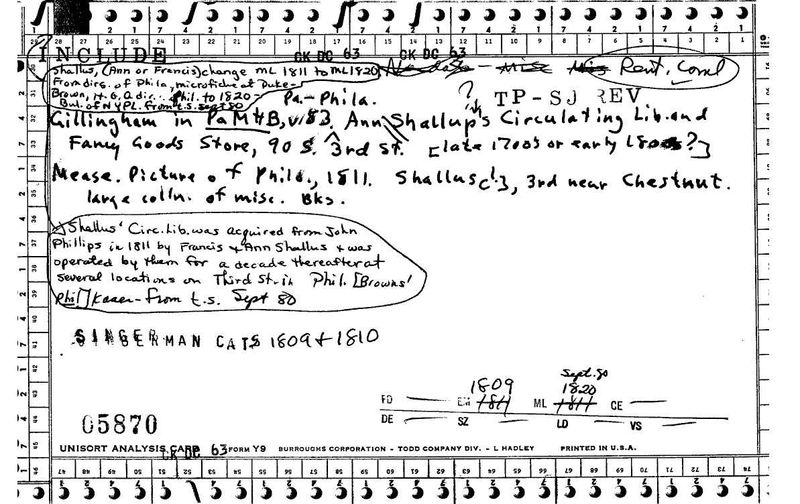 INCLUDE
CK DC 63
CK DC 63
Shallus, (Ann or Francis) change ML 1811 to ML 1820
From dirs. of Phila, microfiche at Duke-
Brown, H.G. Q. dir... Phil. to 1820 -
Bul. of NYPL. From t.s. Sept 80
No date - Misc Misc Rent, Coml
Pa.- Phila.
? TP-SJ REV
Gillingham in PaMHB, v. 83, Ann Shallup's Circulating Lib. and
Fancy Goods Store, 90 S. 3rd St. [late 1700's or early 1800s?]
Mease. Picture of Phila., 1811. Shallus [c!], 3rd near Chestnut.
large colln. of misc. Bks.
Shallus' Circ. Lib. was acquired from John
Phillips in 1811 by Francis & Ann Shallus & was
operated by them for a decade thereafter at
several locations on Third St. in Phil. [Browns'
Phil] Kaser - From t.s. Sept 80
SINGERMAN CATS 1809 & 1810
Sept. 80
1809 1820
FD EM 1811 ML 1811 CE
DE SZ LD VS
05870
UNISORT ANALYSIS CARD CK DC 63 FORM Y9 BURROUGHS CORPORATION - TODD COMPANY DIV. - L HADLEY PRINTED IN U.S.A.